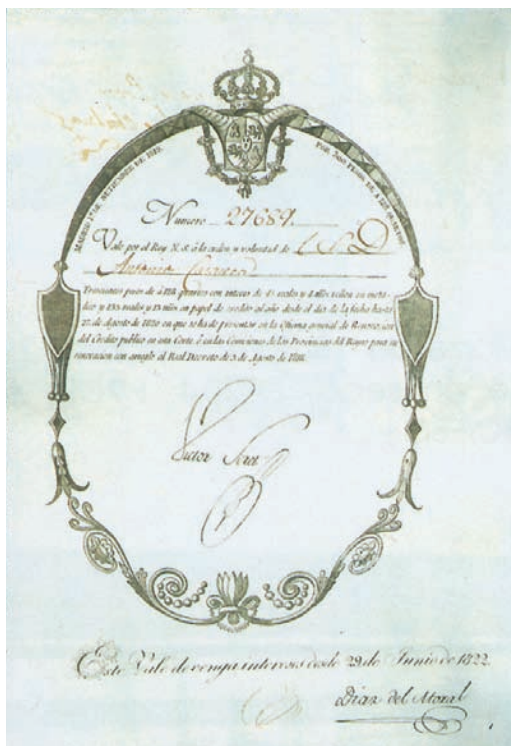 MADRID 1º DE SETIEMBRE DE 1819.
POR 300 PESOS DE Á 128 QUARTOS
Numero 27689.
Vale por el Rey N. S. á la orden y voluntad de
Antonio
Trescientos pesos de á 128 quartos con interes de reales y mrs vellon en metá-
lico y 135 reales y mrs en papel de credito al año desde el dia de la fecha hasta
de Agosto de 1820 en que se ha de presentar en la Oficina general de Renovacion
del Crédito publico en esta Corte ó en las Comisiones de las Provincias del Reyno para su
renovacion con arreglo al Real Decreto de 3 de Agosto de 1818.
Victor Soret
Este Vale devenga intereses desde 29 de Junio de 1822.
Diaz del Moral